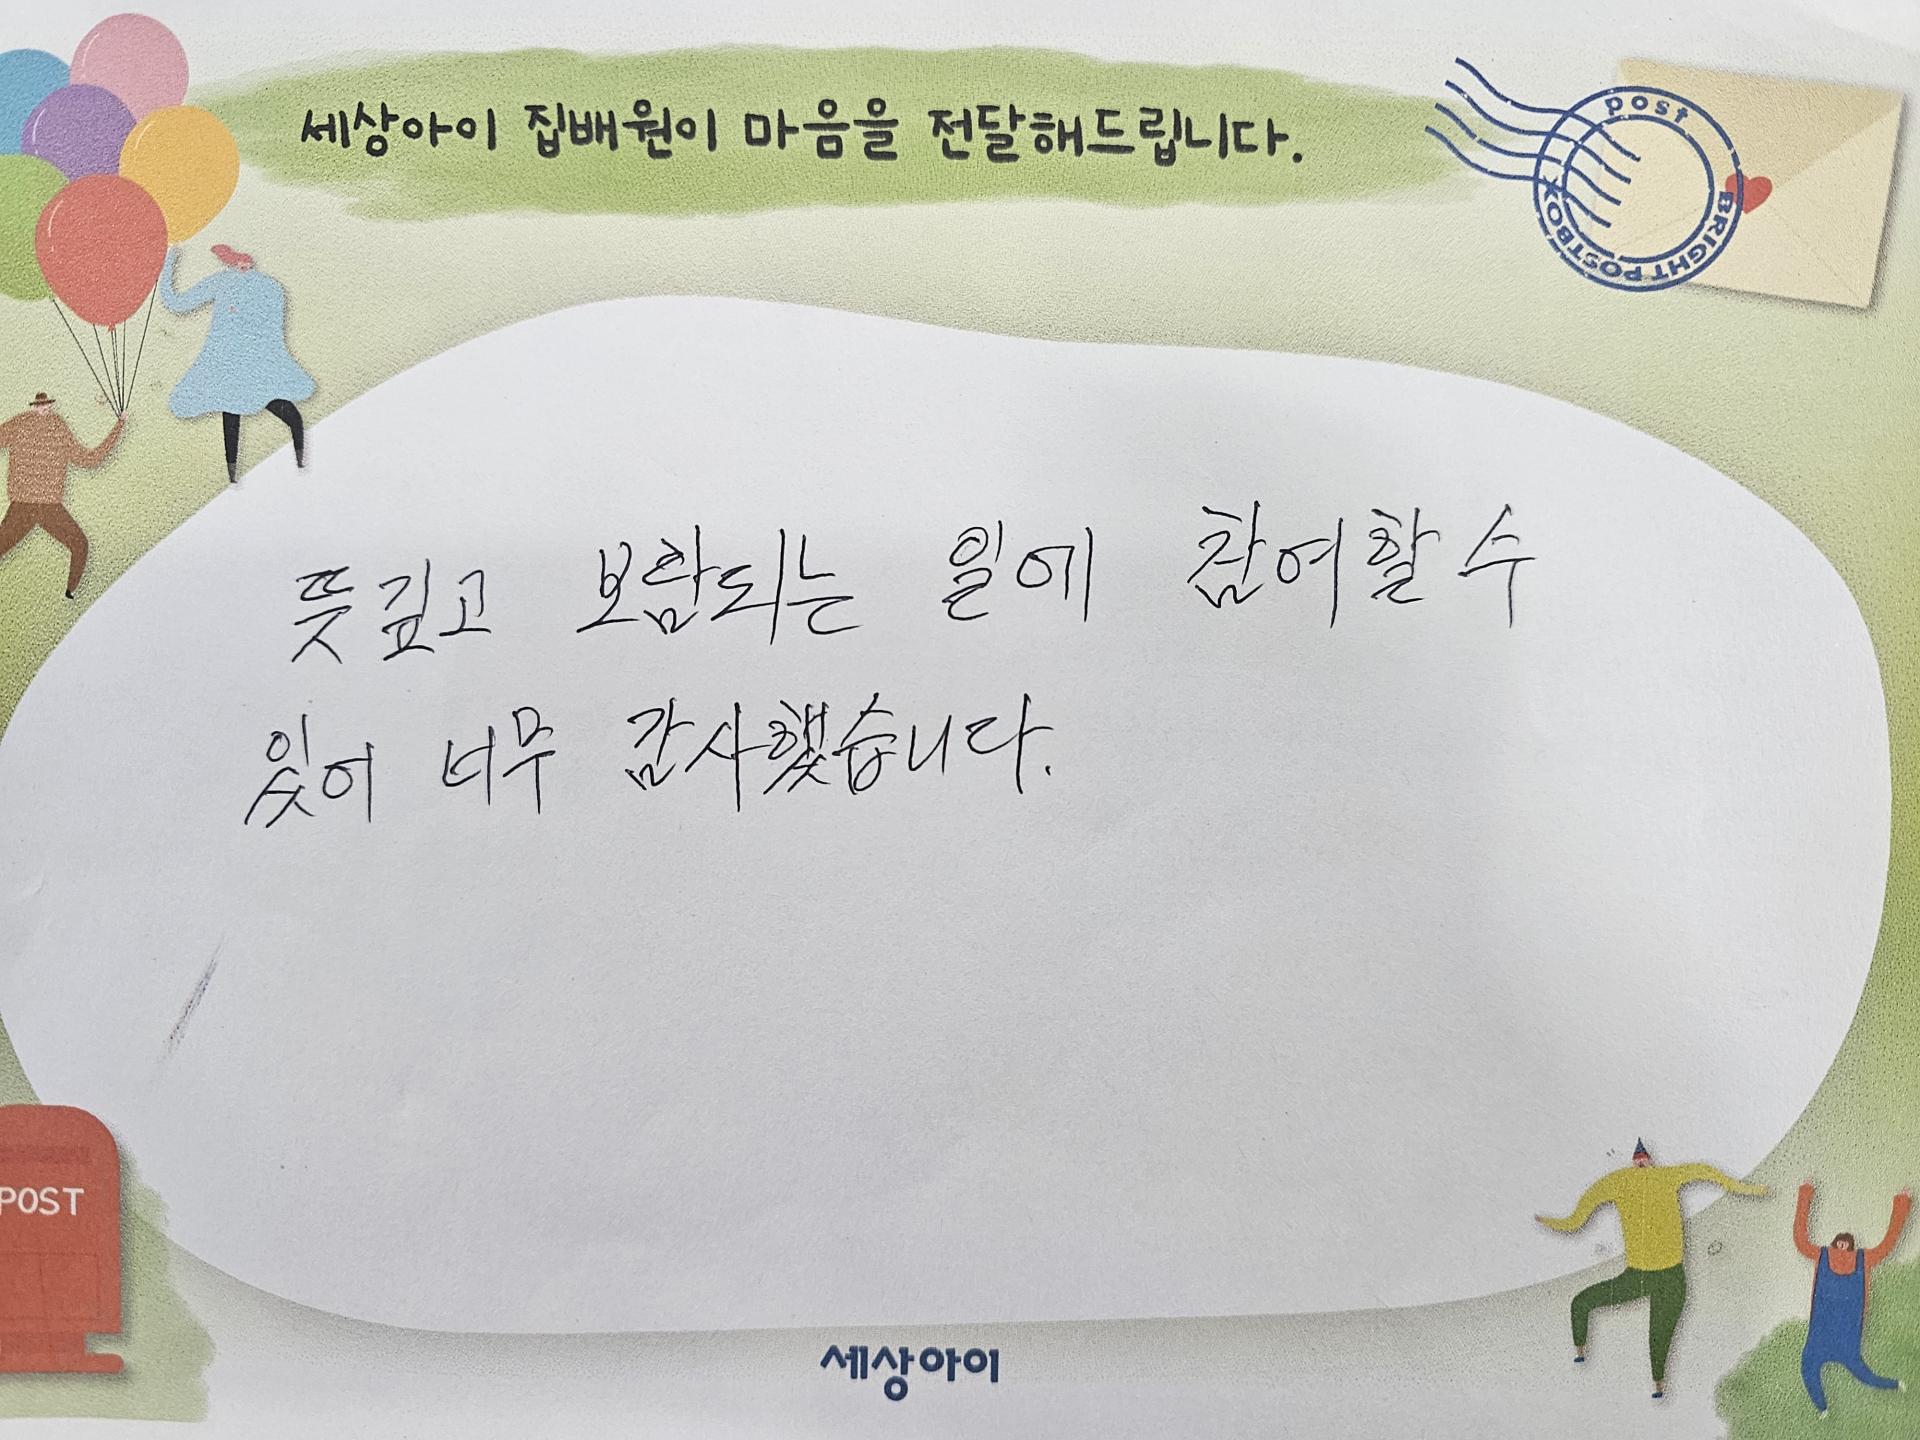 세상아이 집배원이 마음을 전달해드립니다.
post
BRIGHT POSTBOX
뜻깊고 보람되는 일에 참여할 수
있어 너무 감사했습니다.
POST
세상아이